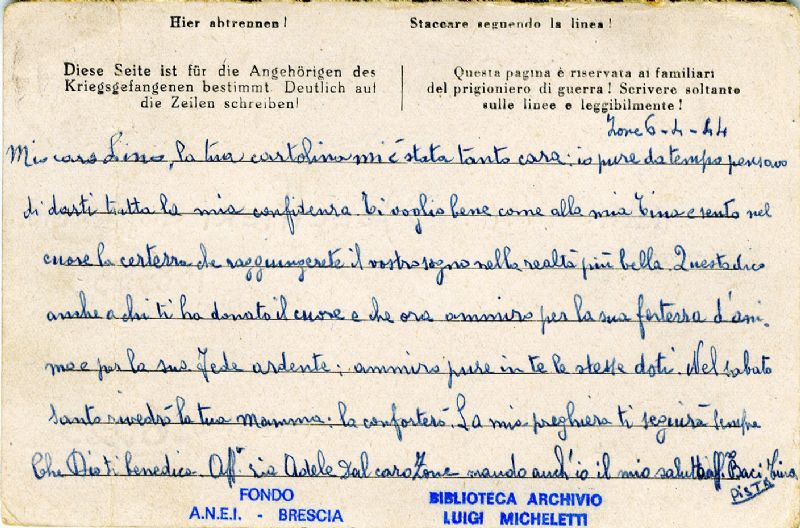 Hier abtrennen!
Staccare seguendo la linea!
Diese Seite ist für die Angehörigen des
Kriegsgefangenen bestimmt. Deutlich auf
die Zeilen schreiben!
Questa pagina è riservata ai familiari
del prigioniero di guerra! Scrivere soltanto
sulle linee e leggibilmente!
Zone 6-4-44
Mio caro Lino, la tua cartolina mi è stata tanto cara: io pure da tempo pensavo
di darti tutta la mia confidenza. Ti voglio bene come alla mia Tina e sento nel
cuore la certezza che raggiungerete il vostro sogno nella realtà più bella. Questo dico
anche a chi ti ha donato il cuore e che ora ammiro per la sua fortezza d'ani-
mo e per la sua fede ardente; ammiro pure in te le stesse doti. Nel sabato
santo rivedrò la tua mamma: la conforterò. La mia preghiera ti seguirà sempre
Che Dio ti benedica. Aff. zia Adele Dal caro Zone mando anch'io il mio saluto aff. Baci Tina
PISTA
FONDO
A.N.E.I. - BRESCIA
BIBLIOTECA ARCHIVIO
LUIGI MICHELETTI